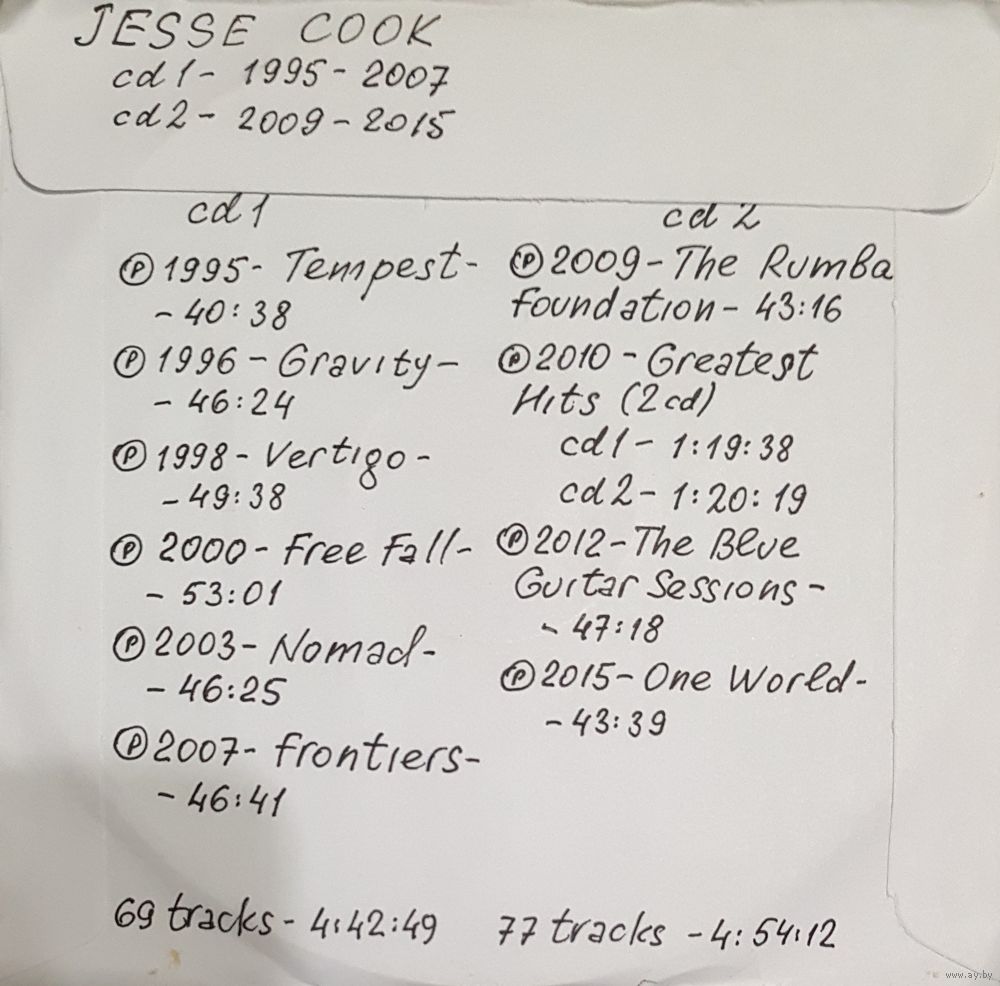 JESSE COOK
cd 1 - 1995 - 2007
cd 2 - 2009 - 2015
cd 1
Ⓟ 1995 - Tempest -
- 40:38
Ⓟ 1996 - Gravity -
- 46:24
Ⓟ 1998 - Vertigo -
- 49:38
Ⓟ 2000 - Free Fall -
- 53:01
Ⓟ 2003 - Nomad -
- 46:25
Ⓟ 2007 - Frontiers -
- 46:41
69 tracks - 4:42:49
cd 2
Ⓟ 2009 - The Rumba
Foundation - 43:16
Ⓟ 2010 - Greatest
Hits (2cd)
cd 1 - 1:19:38
cd 2 - 1:20:19
Ⓟ 2012 - The Blue
Guitar Sessions -
- 47:18
Ⓟ 2015 - One World -
- 43:39
77 tracks - 4:54:12
www.ay.by